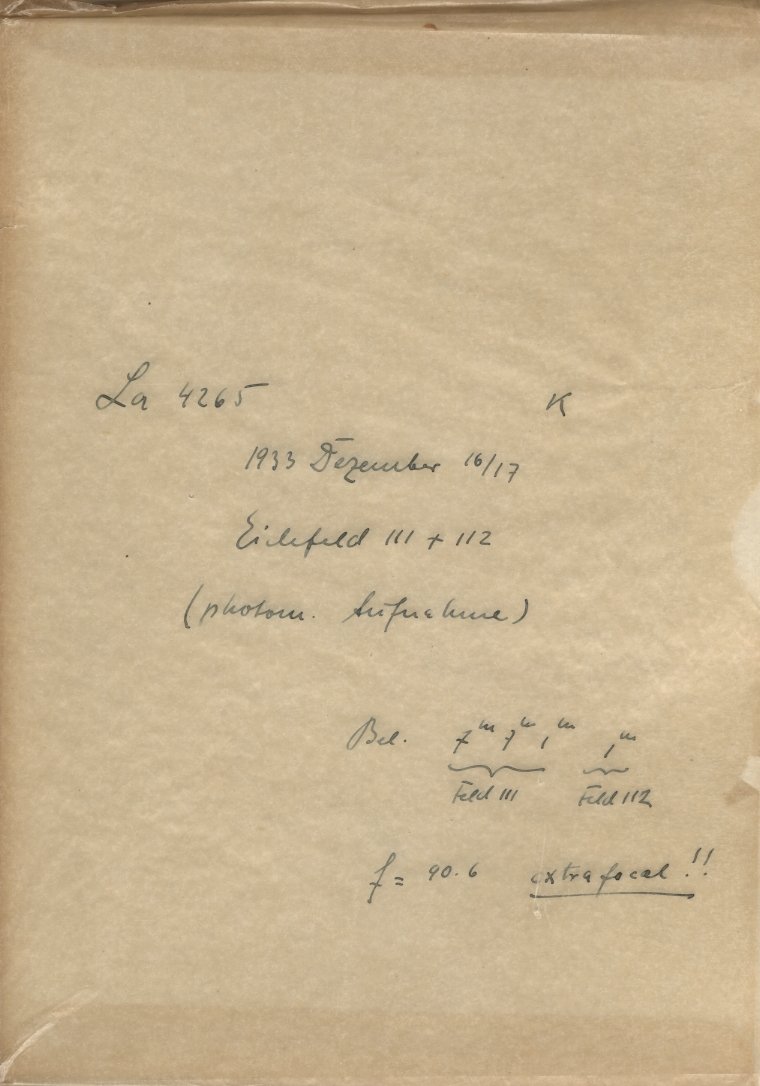 La 4265 K
1933 Dezember 16/17
Eichfeld 111 + 112
(photom. Aufnahme)
Bel. 7ᵐ 7ᵐ 1ᵐ 1ᵐ
Feld 111 Feld 112
f = 90.6 extrafocal!!